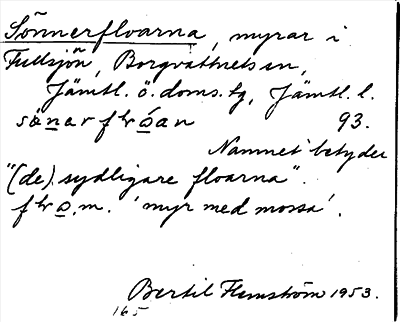 Sönnerfloarna, myrar i
Fullsjön, Borgvattnets sn,
Jämtl. ö. doms. tg, Jämtl. l.
sänar flóan 93.
Namnet betyder
"(de) sydligare floarna".
flo, m. 'myr med mossa'.
Bertil Flemström 1953.
165